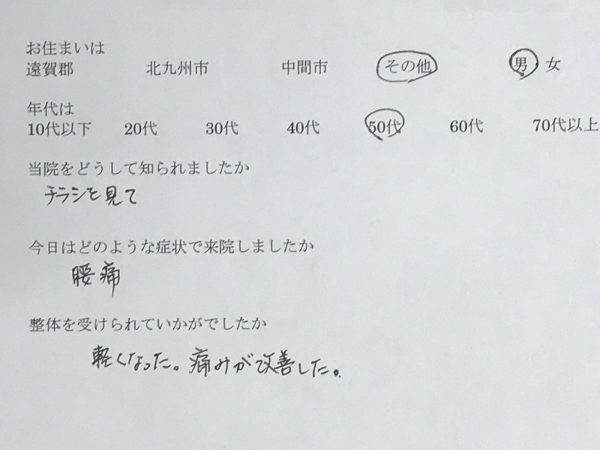 お住まいは
遠賀郡 北九州市 中間市 その他 男・女
年代は
10代以下 20代 30代 40代 50代 60代 70代以上
当院をどうして知られましたか
チラシを見て
今日はどのような症状で来院しましたか
腰痛
整体を受けられていかがでしたか
軽くなった。痛みが改善した。